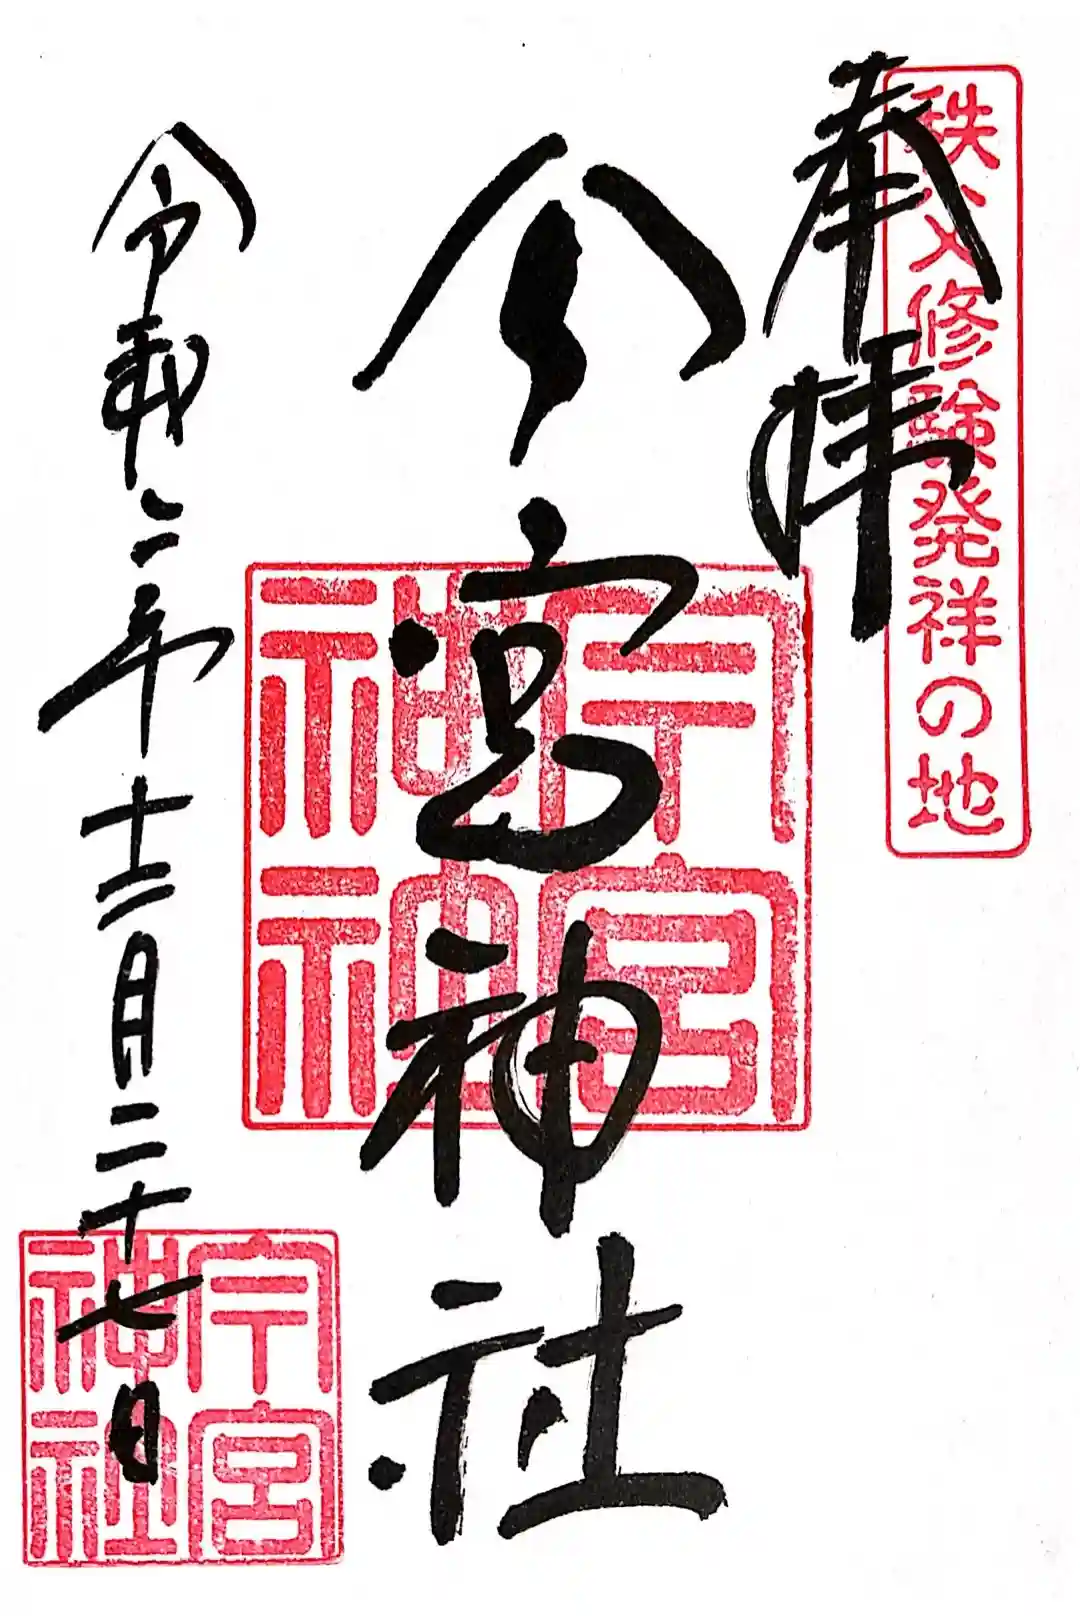 秩父修験発祥の地
奉拝
今宮神社
今宮神社
令和二年十二月二十七日
今宮神社